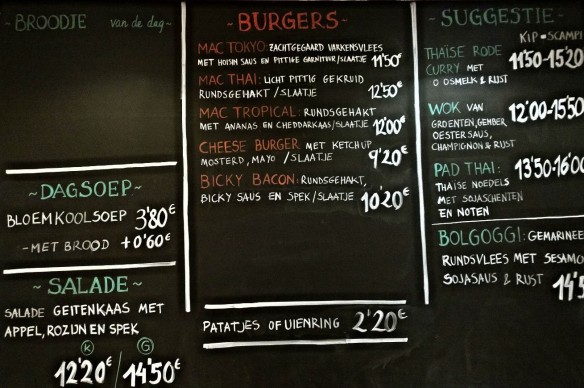 ~BROODJE van de dag~
~DAGSOEP~
BLOEMKOOLSOEP 3'80€
-MET BROOD +0'60€
~SALADE~
SALADE GEITENKAAS MET
APPEL, ROZIJN EN SPEK
K G
12'20/14'50€
-BURGERS-
MAC TOKYO: ZACHTGEGAARD VARKENSVLEES
MET HOISIN SAUS EN PITTIGE GARNITUUR/SLAATJE 11'50€
MAC THAI: LICHT PITTIG GEKRUID
RUNDSGEHAKT/SLAATJE 12'50€
MAC TROPICAL: RUNDSGEHAKT
MET ANANAS EN CHEDDARKAAS/SLAATJE 12'00€
CHEESE BURGER MET KETCHUP
MOSTERD, MAYO/SLAATJE 9'20€
BICKY BACON: RUNDSGEHAKT,
BICKY SAUS EN SPEK/SLAATJE 10'20€
PATATJES OF UIENRING 2'20€
-SUGGESTIE-
KIP-SCAMPI
THAÏSE RODE 11'50-15'20
CURRY MET
& RIJST
WOK VAN 12'00-15'50
GROENTEN, GEMBER
OESTERSAUS,
CHAMPIGNON & RIJST
PAD THAI: 13'50-16'00
THAÏSE NOEDELS
MET SOJASCHEUTEN
EN NOTEN
BOLGOGGI: GEMARINEE
RUNDSVLEES MET SESAM
SOJASAUS & RIJST 14'5